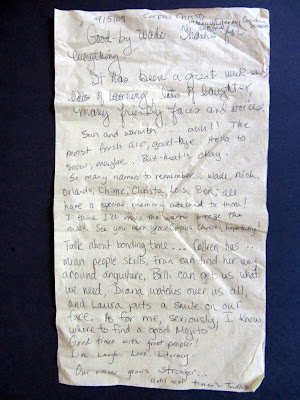 9/5/09 Corpus Christi
Good-by, Wade. Thanks for
everything.
It has been a great week and
lots of learning, lots of laughter,
many friendly faces and voices.
Sun and warmth... ahh!! The
moist fresh air, good-bye. Hello to
snow, maybe. But that's okay.
So many names to remember... Wade, Nick,
Orlando, Chime, Christa, Lois, Ben, all
have a special memory attached to them!
I think I'll miss the warm breeze the
most. See you next year Corpus Christi, hopefully.
Talk about bonding time... Colleen has
mean people skills, Fran can find her way
around anywhere, Billi can get us what
we need, Diana watches over us all,
and Laura puts a smile on our
face. As for me, seriously, I know
where to find a good Mojito.
Good times with great people!
Live. Laugh. Love. Literacy.
Our money grows stronger...
until next time